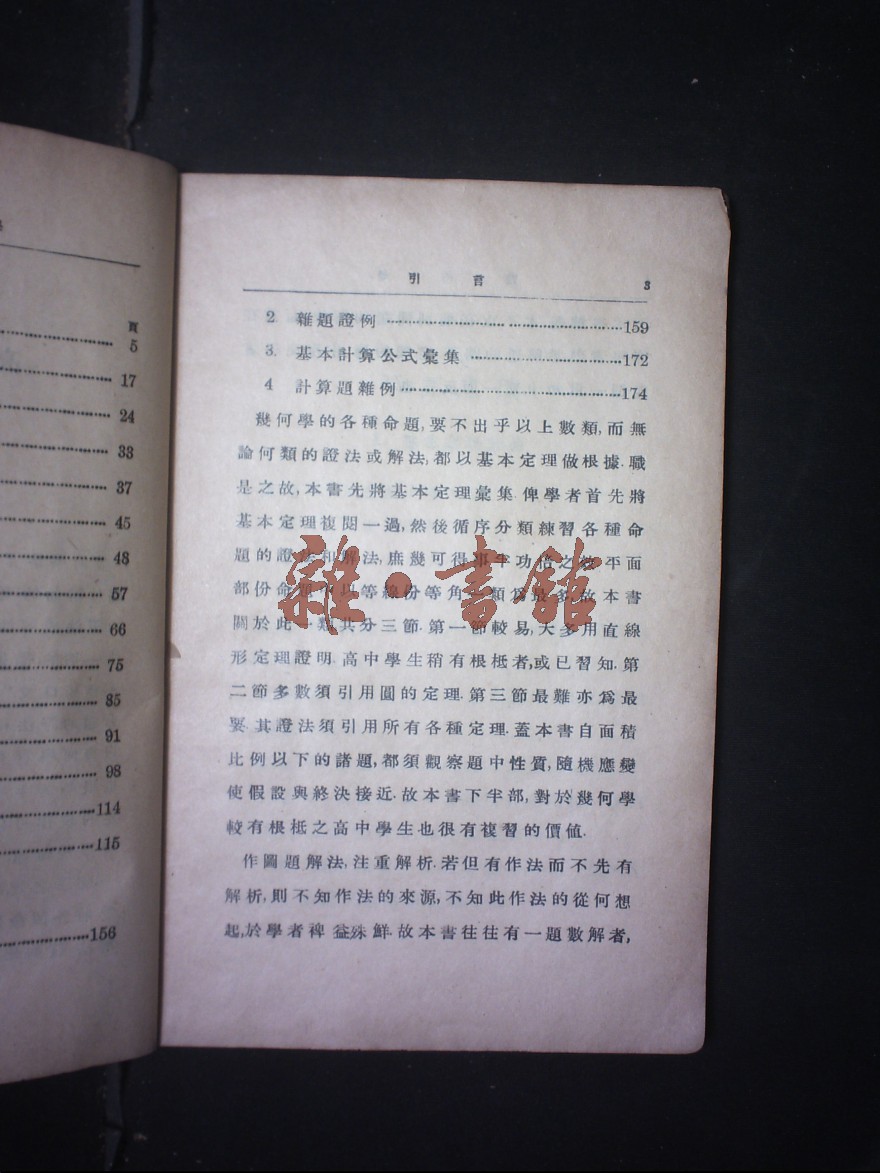 頁
5
17
24
33
37
45
48
57
66
75
85
91
98
114
115
156
引言 3
2. 雜題證例 159
3. 基本計算公式彙集 172
4 計算題雜例 174
幾何學的各種命題,要不出乎以上數類,而無
論何類的證法或解法,都以基本定理做根據.職
是之故,本書先將基本定理彙集.俾學者首先將
基本定理複閱一過,然後循序分類練習各種命
題的證法和解法,庶幾可得事半功倍之效.平面
部份命題 以等線份等角 類爲最多,故本書
關於此一類共分三節.第一節較易,大多用直線
形定理證明.高中學生稍有根柢者,或已習知.第
二節多數須引用圓的定理.第三節最難亦爲最
要.其證法須引用所有各種定理.蓋本書自面積
比例以下的諸題,都須觀察題中性質,隨機應變
使假設與終決接近.故本書下半部,對於幾何學
較有根柢之高中學生也很有複習的價値.
作圖題解法,注重解析.若但有作法而不先有
解析,則不知作法的來源,不知此作法的從何想
起,於學者裨益殊鮮.故本書往往有一題數解者,
雜·書館